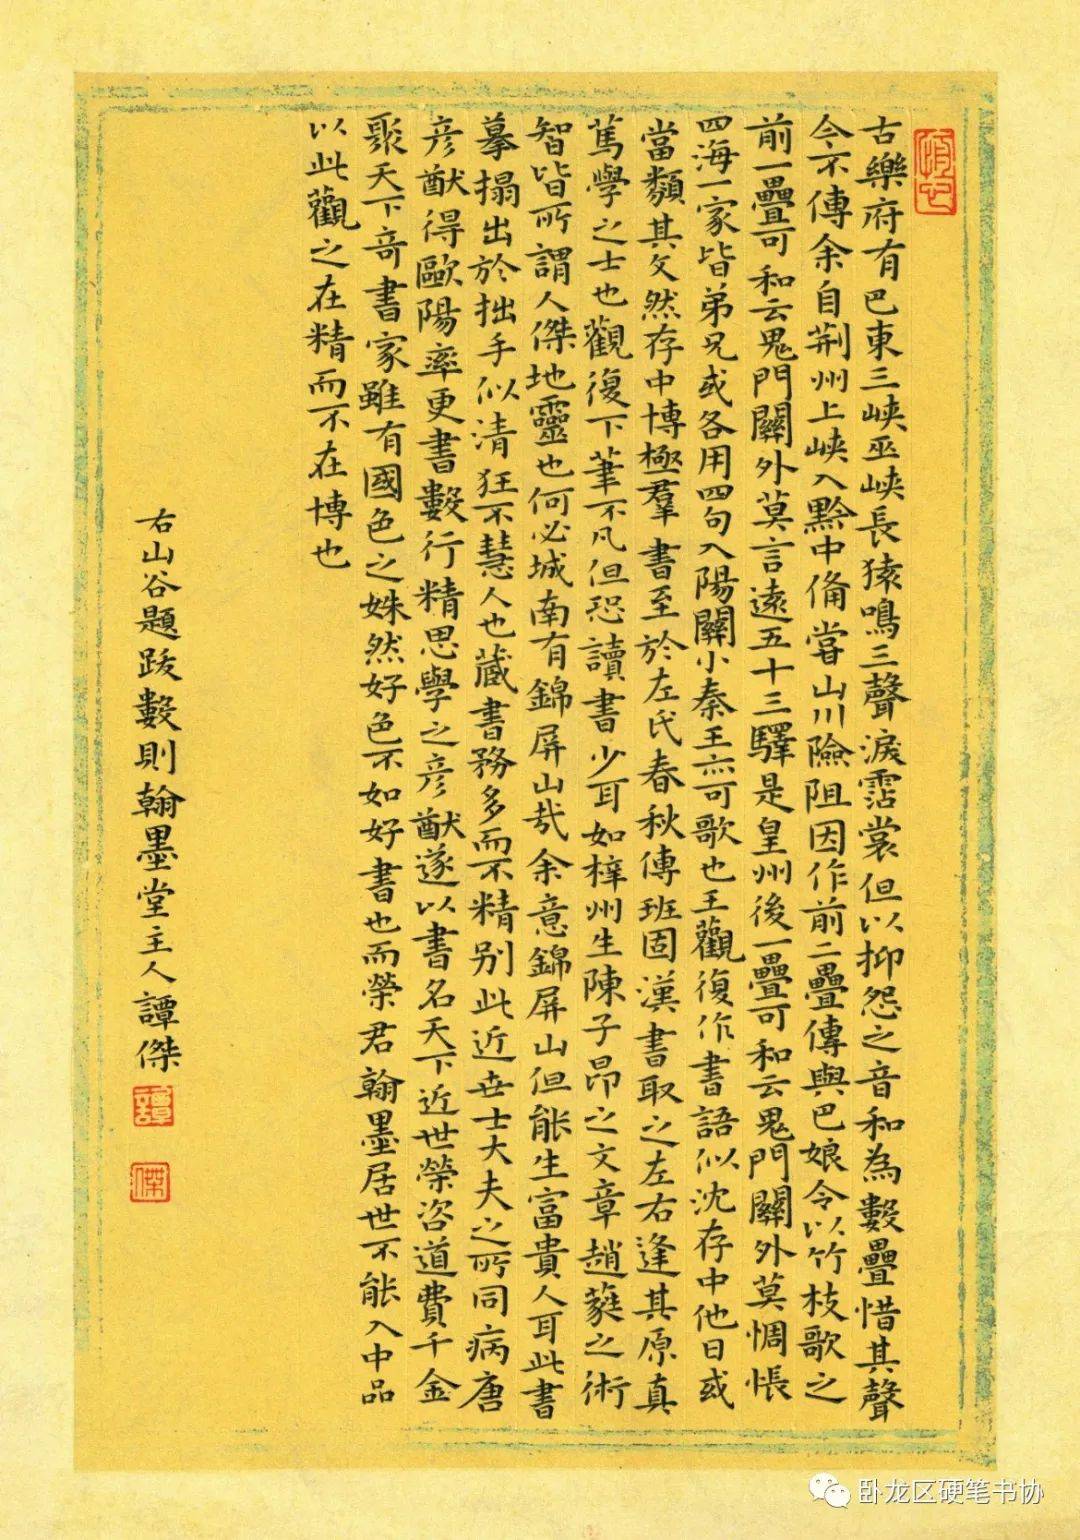 古樂府有巴東三峽巫峽長猿鳴三聲淚霑裳但以抑怨之音和為數疊惜其聲
今不傳余自荆州上峽入黔中俻甞山川險阻因作前二疊傳與巴娘令以竹枝歌之
前一疊可和云鬼門關外莫言遠五十三驛是皇州後一疊可和云鬼門關外莫惆悵
四海一家皆弟兄或各用四句入陽關小秦王亦可歌也王觀復作書語似沈存中他日或
當類其文然存中博極羣書至於左氏春秋傳班固漢書取之左右逢其原真
篤學之士也觀復下筆不凡但恐讀書少耳如梓州生陳子昂之文章趙蕤之術
智皆所謂人傑地靈也何必城南有錦屏山哉余意錦屏山但能生富貴人耳此書
摹搨出於拙手似清狂不慧人也藏書務多而不精别此近世士大夫之所同病唐
彦猷得歐陽率更書數行精思學之彦猷遂以書名天下近世榮咨道費千金
聚天下奇書家雖有國色之姝然好色不如好書也而榮君翰墨居世不能入中品
以此觀之在精而不在博也
右山谷題跋數則翰墨堂主人譚傑
譚
傑
卧龙区硬笔书协